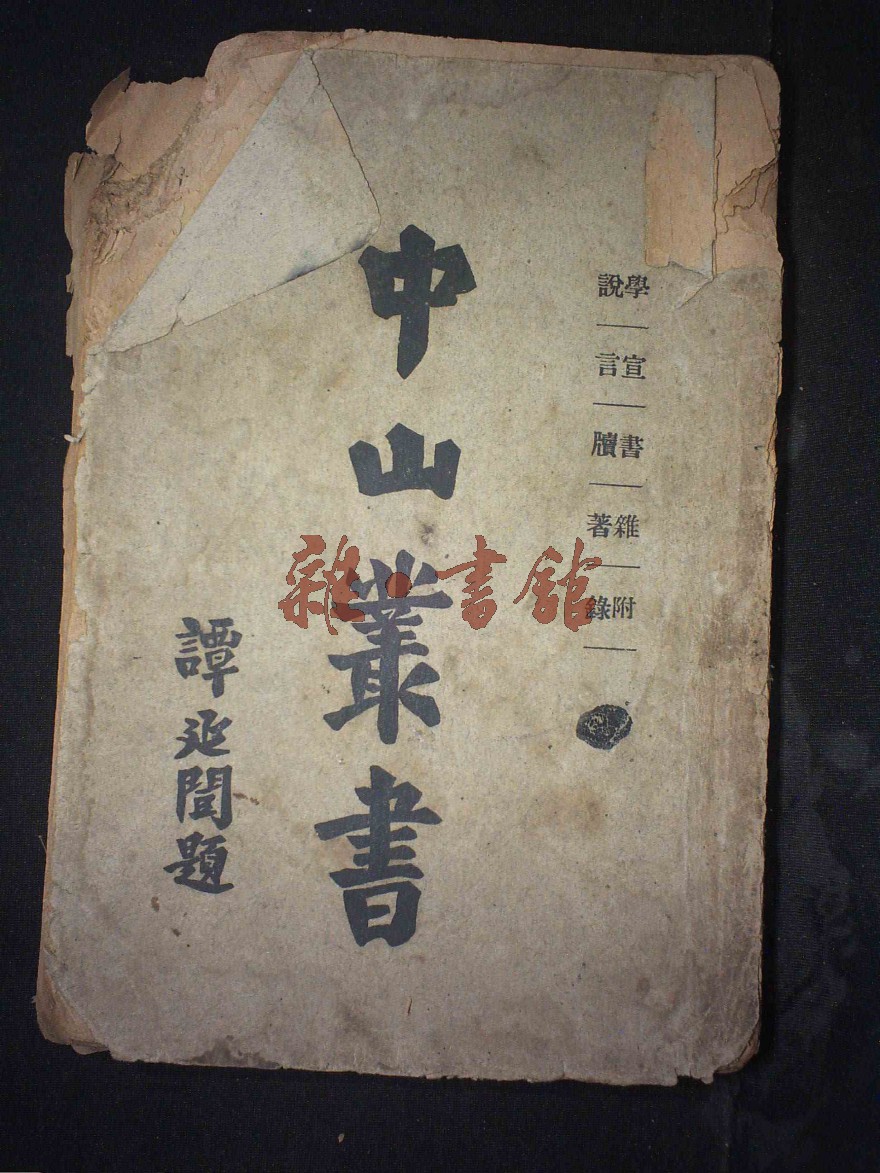 學說—宣言—書牘—雜著—附錄—
中山叢書
譚延闓題
雜·書館